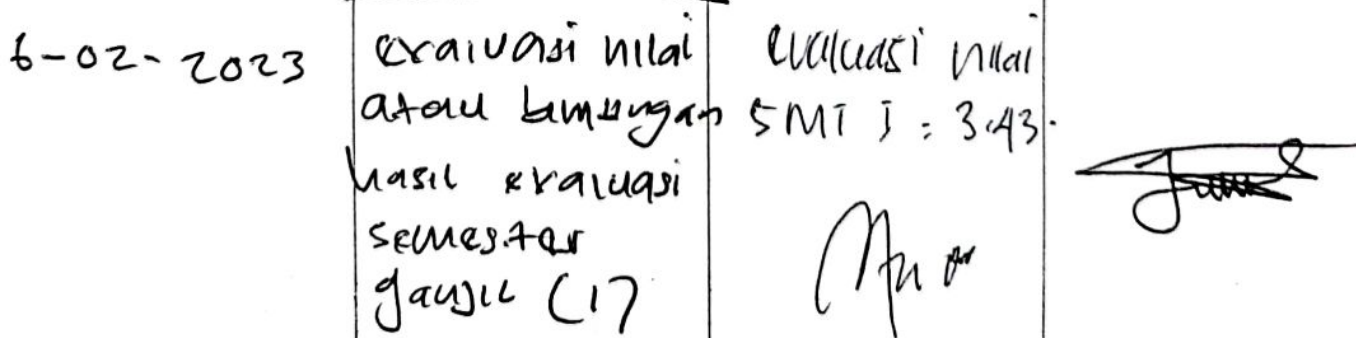 6-02-2023
evaluasi nilai
atau bimbingan
hasil evaluasi
semester
ganjil (1)
evaluasi nilai
SMT I : 3.43.